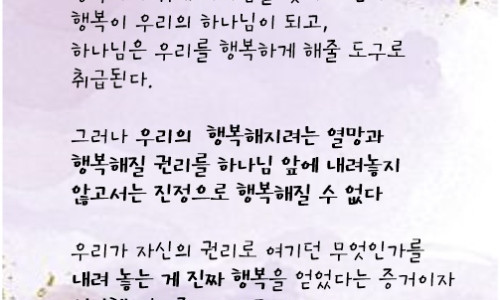 행복이 우리의 하나님이 되고,
하나님은 우리를 행복하게 해줄 도구로
취급된다.
그러나 우리의 행복해지려는 열망과
행복해질 권리를 하나님 앞에 내려놓지
않고서는 진정으로 행복해질 수 없다
우리가 자신의 권리로 여기던 무엇인가를
내려 놓는 게 진짜 행복을 얻었다는 증거이자